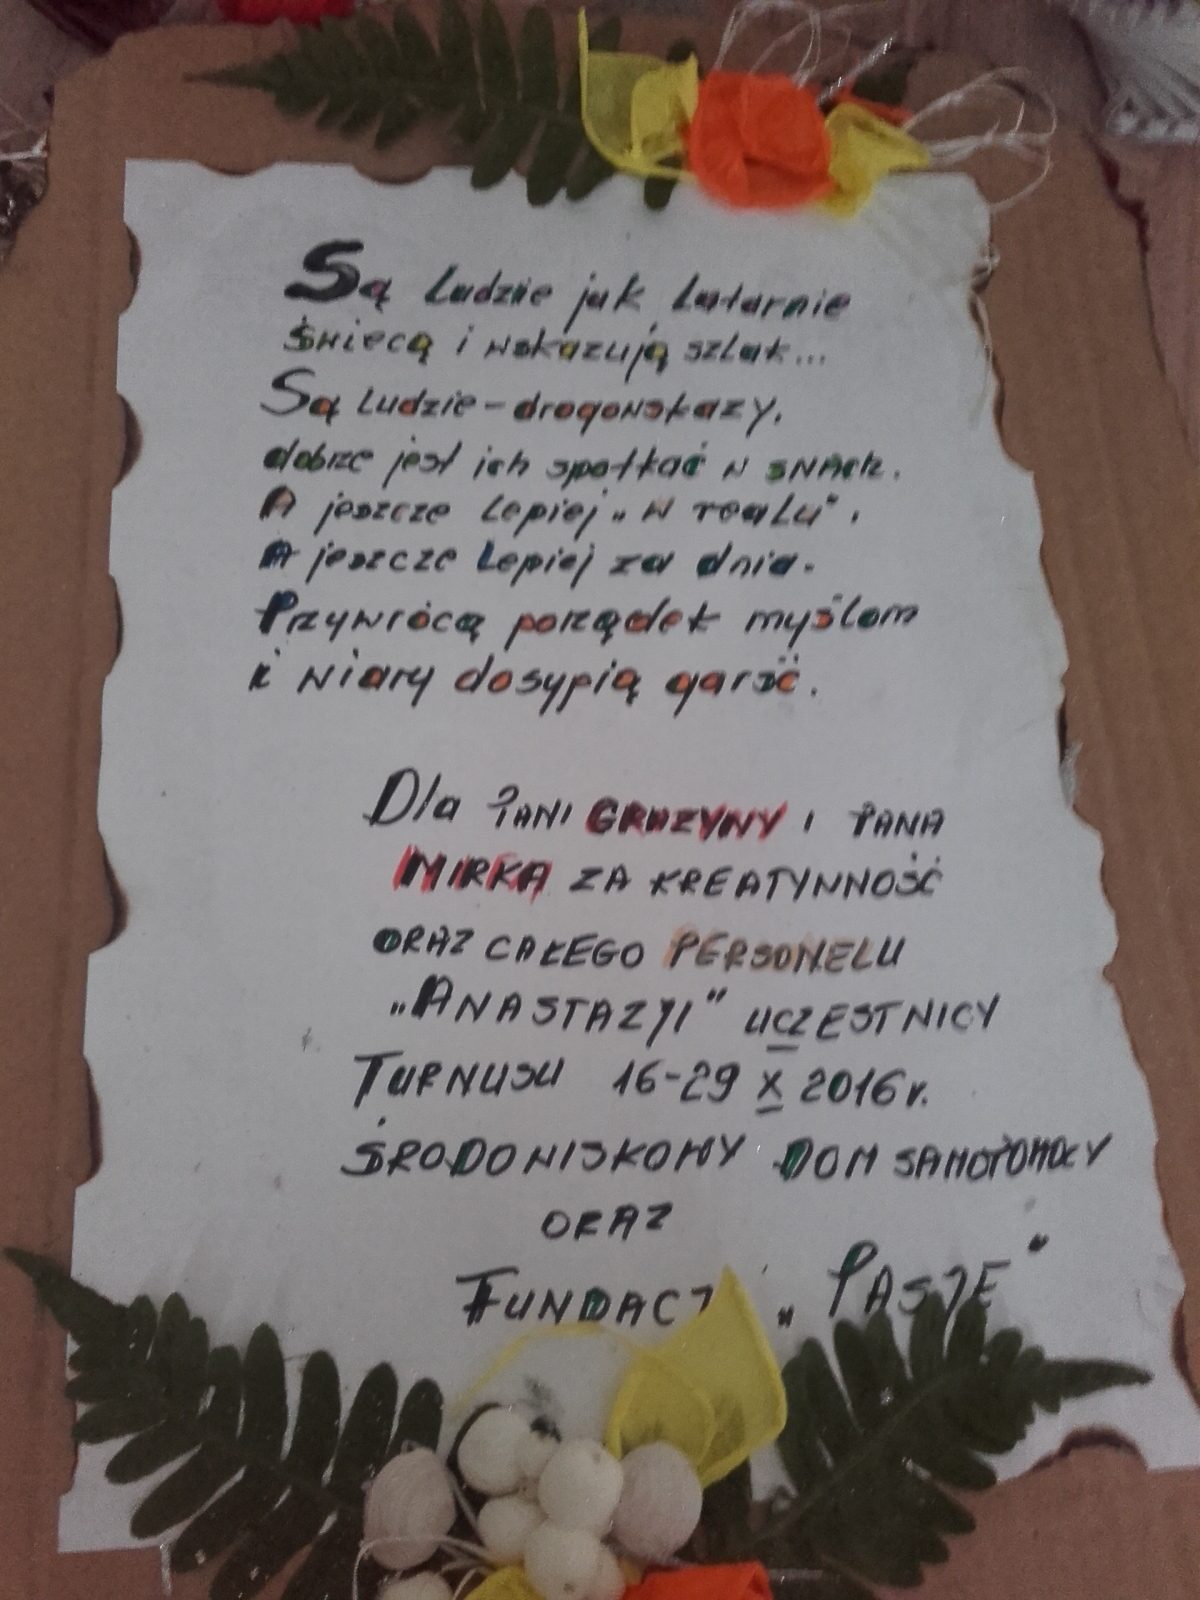 Są ludzie jak latarnie
świecą i wskazują szlak...
Są ludzie - drogowskazy,
dobrze jest ich spotkać w snach.
A jeszcze lepiej „w realu".
A jeszcze lepiej za dnia.
Przywrócą porządek myślom
i wiary dosypią garść.
Dla PANI GRAZYNY I PANA
MIRKA ZA KREATYWNOŚĆ
ORAZ CAŁEGO PERSONELU
„ANASTAZYI" UCZESTNICY
TURNUSU 16-29 X 2016r.
ŚRODOWISKOWY DOM SAMOPOMOCY
ORAZ
FUNDACJ „PASJE"